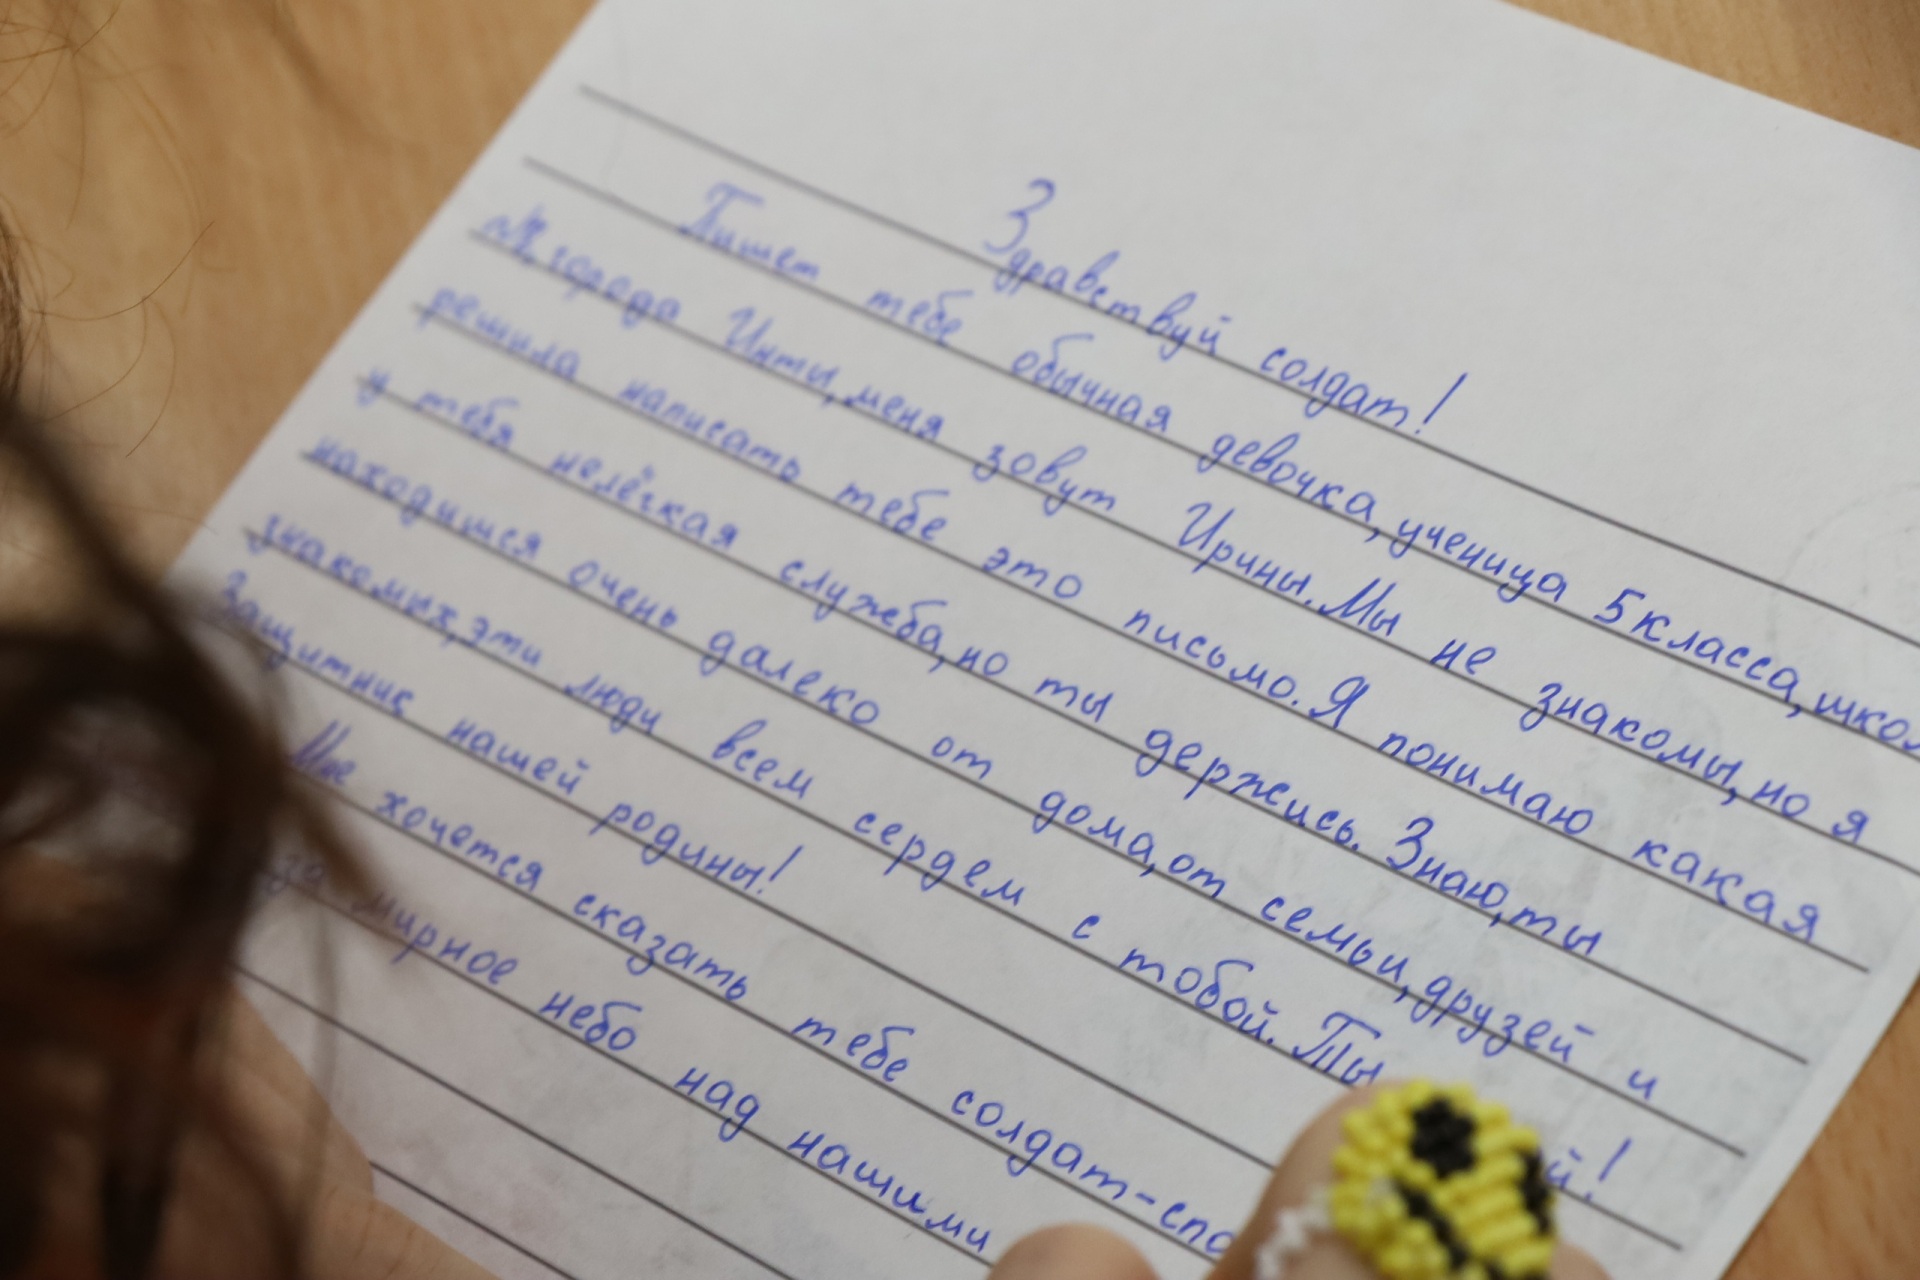 Здравствуй солдат!
Пишет тебе обычная девочка, ученица 5 класса, школ
города Инты, меня зовут Ирины. Мы не знакомы, но я
решила написать тебе это письмо. Я понимаю какая
у тебя нелёгкая служба, но ты держись. Знаю, ты
находишся очень далеко от дома, от семьи, друзей и
знакомых, эти люди всем сердем с тобой. Ты й!
Защитник нашей родины!
Мне хочется сказать тебе солдат-спа
за мирное небо над нашими